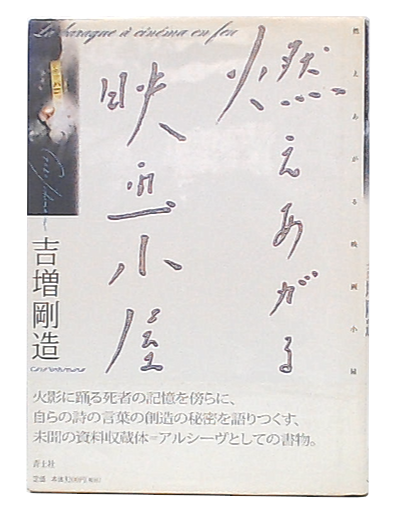 La baraque à cinéma en feu
燃えあがる
映画小屋
吉増剛造
火影に踊る死者の記憶を傍らに、
自らの詩の言葉の創造の秘密を語りつくす、
未聞の資料収蔵体=アルシーヴとしての書物。
青土社
定価 本体3200円
燃えあがる映画小屋